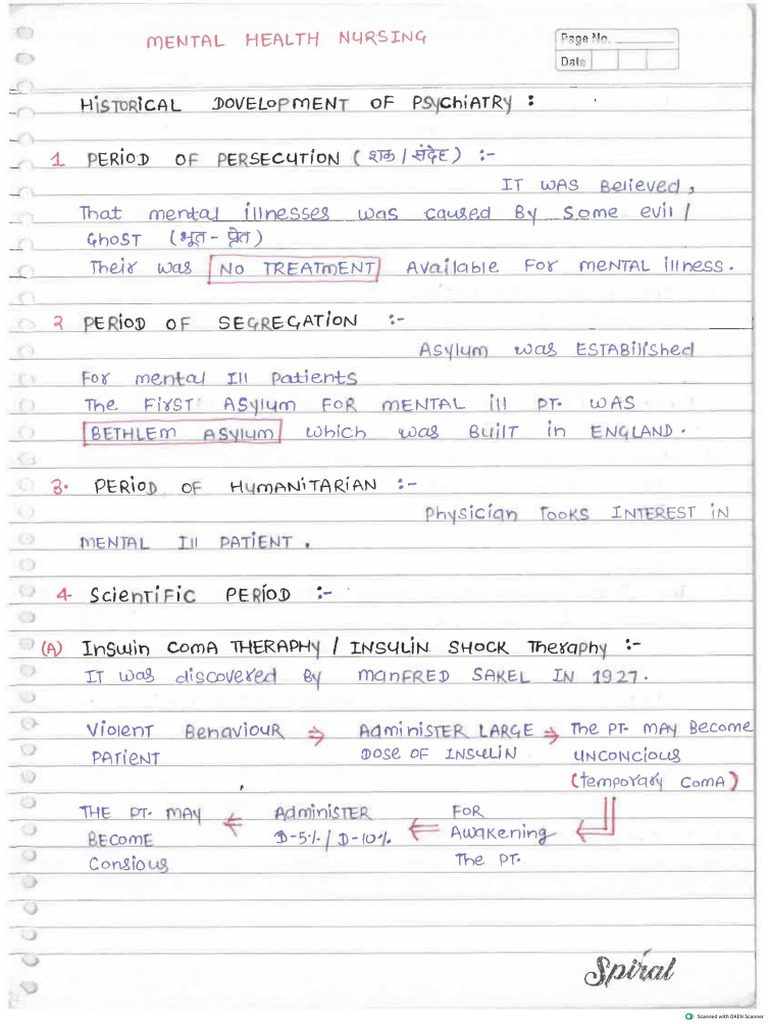 MENTAL HEALTH NURSING
Page No.
Date
HISTORICAL DOVELOPMENT OF PSYCHIATRY :
1 PERIOD OF PERSECUTION (शक / संदेह) :-
IT WAS Believed,
That mental illnesses was caused By some evil /
GHOST (भूत - प्रेत)
Their was NO TREATMENT Available For MENTAL illness.
2 PERIOD OF SEGREGATION :-
Asylum was ESTABilished
For mental Ill Patients
The FIRST ASYlum FOR MENTAL ill PT. WAS
BETHLEM ASYlum which was BUilT in ENGLAND.
3. PERIOD OF HUMANITARIAN :-
Physician TOOKS INTEREST iN
MENTAL Ill PATIENT.
4 Scientific PERIOD :-
(A) INSULIN COMA THERAPHY / INSULIN SHOCK Theraphy :-
IT was discovered By MANFRED SAKEL IN 1927.
Violent Behaviour ⇒ AdminiSTER LARGE ⇒ The PT. MAY Become
PATIENT DOSE OF INSULIN UNCONCIOUS
(temporary COMA)
THE PT. MAY ⇐ AdminiSTER ⇐ FOR
BECOME D-5% / D-10% Awakening
Consious The PT.
Spiral
Scanned with OKEN Scanner